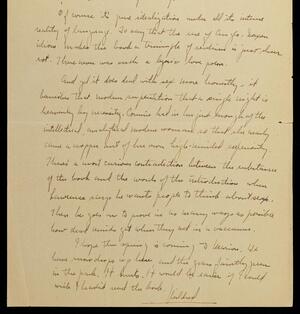 Of course it's pure idealization under all its intense
reality of imagery. To say that the use of Anglo-Saxon
idiom makes this book a triumph of realism is just sheer
rot. There never was such a lyric love poem.
And yet it does deal with sex more honestly, it
banishes that modern superstition that a single night is
heavenly by necessity. Connie had in her just enough of the
intellectual, analytical modern woman so that she nearly
came a cropper out of her own high-minded
There's a most curious contradiction between the substance
of the book and the words of the introduction when
Lawrence says he wants people to think about sex.
Then he goes on to prove in as many ways as possible
how dead minds get when they act in a vacuum.
I hope the spring is coming to We
have snowdrops up here and the grass faintly green
in the park. It hurts. It would be easier if I could
write & and the book.
Mildred